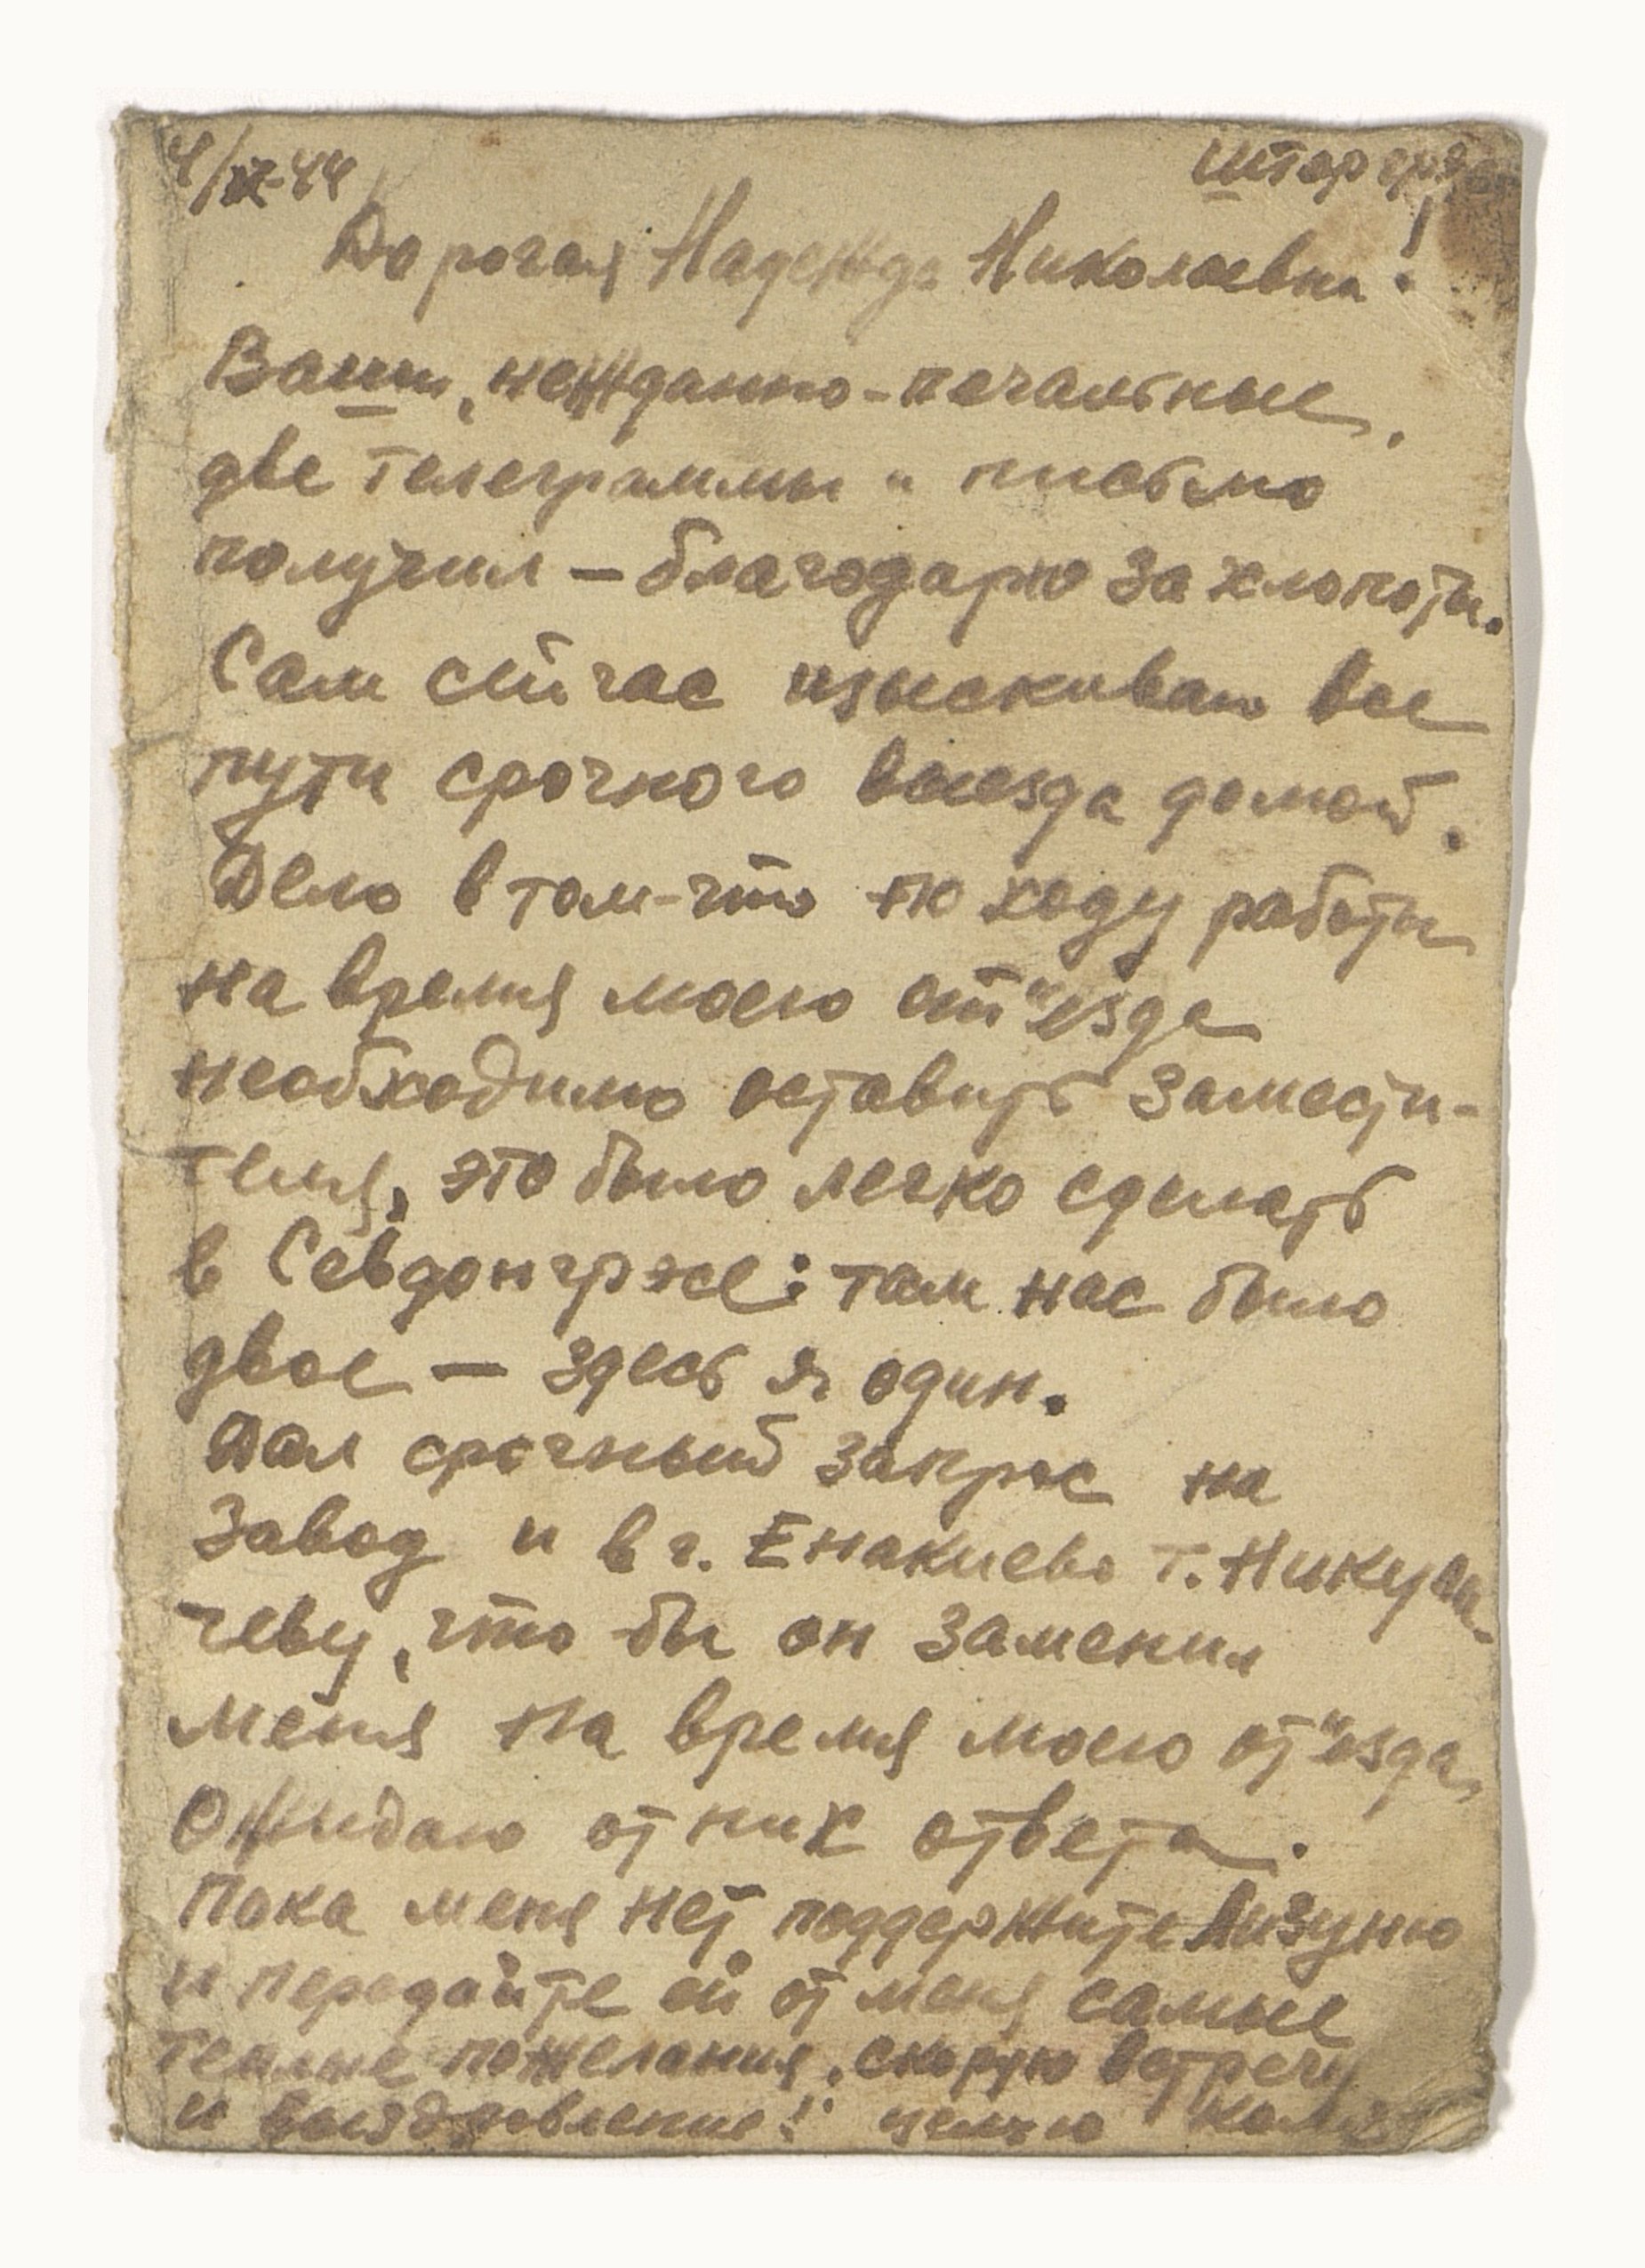 4/IX-44
Шторгрэс
Дорогая Надежда Николаевна!
Ваши, нежданно-печальные,
две телеграммы и письмо
получил – благодарю за хлопоты.
Сам сейчас изыскиваю все
пути срочного выезда домой.
Дело в том-что по ходу работы
на время моего от"езда
необходимо оставить замести-
теля, это было легко сделать
в Севдонгрэсе: там нас было
двое – здесь я один.
Дал срочный запрос на
завод и в г. Енакиево т.
чеву, что бы он заменил
меня на время моего от"езда,
Ожидаю от них ответа.
Пока меня нет поддержите Лизуню
и передайте ей от меня самые
теплые пожелания, скорую встречу
и выздоровление! целую